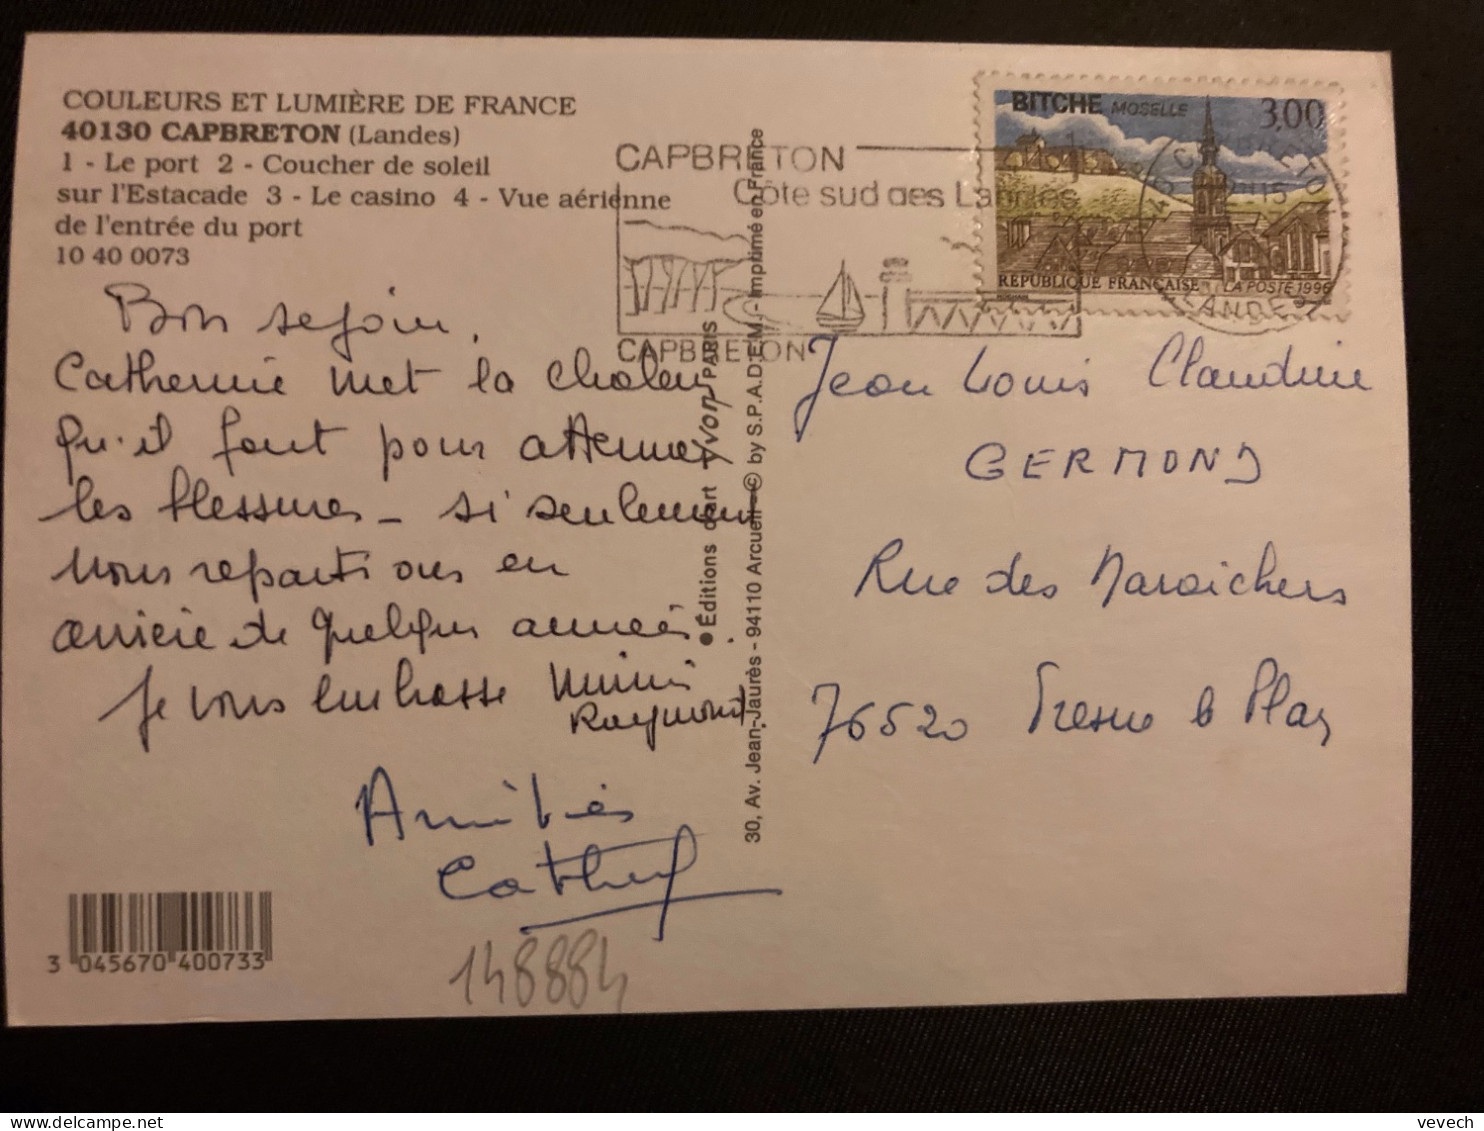 COULEURS ET LUMIÈRE DE FRANCE
40130 CAPBRETON (Landes)
1 - Le port 2 - Coucher de soleil
sur l'Estacade 3 - Le casino 4 - Vue aérienne
de l'entrée du port
10 40 0073
Bon sejour,
Catherine met la chaleur
qu'il faut pour attenuer
les blessures - si seulement
nous repartions en
arrière de quelques années.
Je vous embrasse Mimi
Raymond
Amitiés
Cathy
148884
3 045670 400733
Éditions d'art YVON PARIS
30, Av. Jean-Jaurès - 94110 Arcueil - © by S.P.A.D.E.M. - Imprimé en France
CAPBRETON
Côte sud des Landes
CAPBRETON
BITCHE MOSELLE 3,00
RÉPUBLIQUE FRANÇAISE LA POSTE 1996
CAPBRETON
LANDES
Jean Louis Claudine
GERMOND
Rue des Maraichers
76520 Fresne le Plan